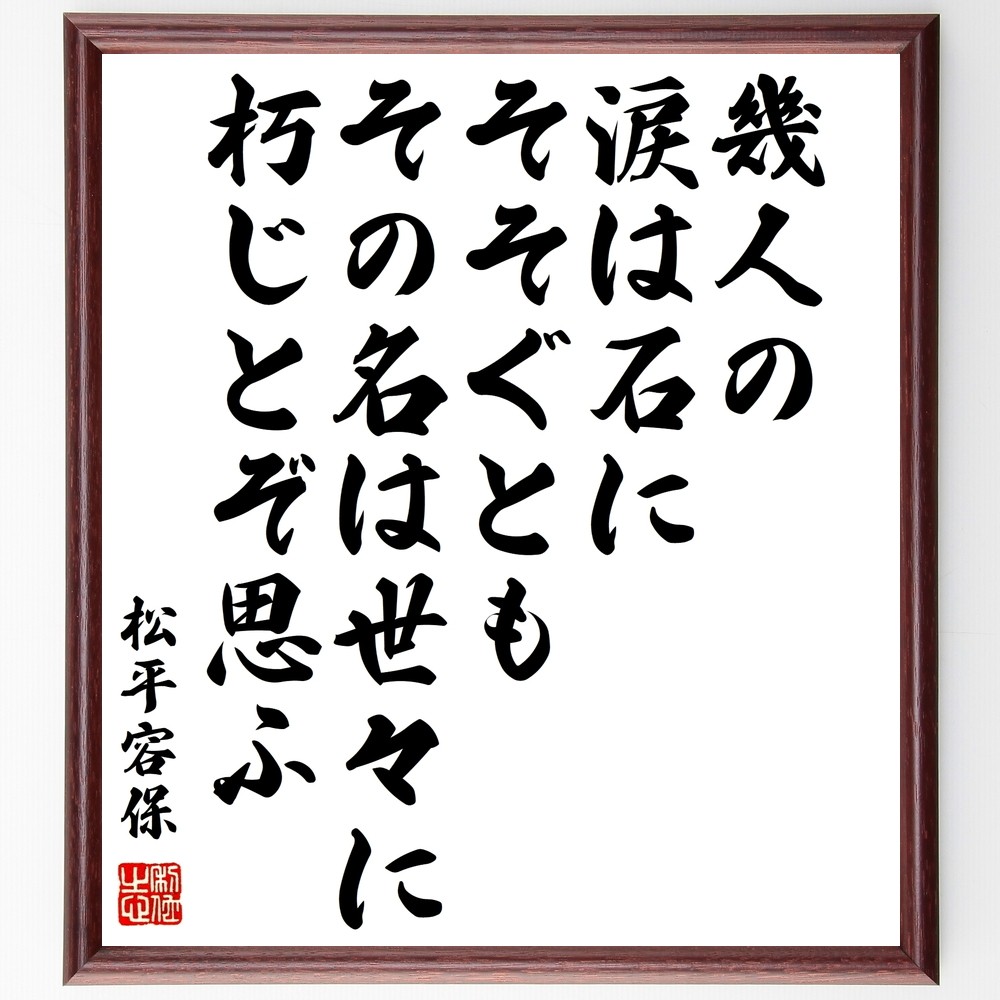 幾人の
涙は石に
そそぐとも
その名は世々に
朽じとぞ思ふ
松平容保